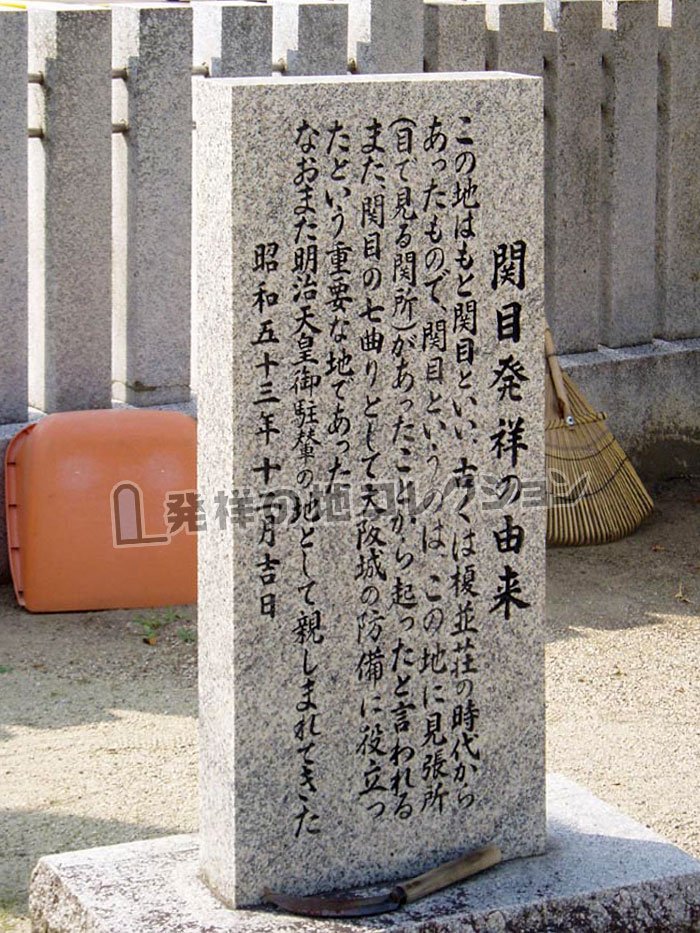 関目発祥の由来
この地はもと関目といい、古くは榎並荘の時代から
あったもので、関目というのは、この地に見張所
(目で見る関所)があったことから起ったと言われる
また、関目の七曲りとして大阪城の防備に役立つ
たという重要な地であった
なおまた明治天皇御駐輦の地として親しまれてきた
昭和五十三年十月吉日
発祥の地コレクション